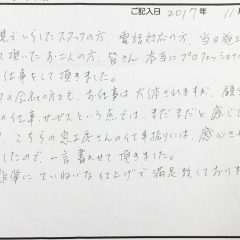 ご記入日 2017 年 11
規でいらしたスタッフの方、電話対応の方、当日施工
頂いたお二人の方、皆さん本当にプロフェッショナル
仕事をして頂きました。
の会社の方でも、お仕事は大体されますが、顧
の仕事、サービスという点では、まだまだと感じて
、こちらの窓工房さんの仕事振りには、感心さ
したので、一言書かせて頂きました。
非常にていねいな仕上げで満足致しております